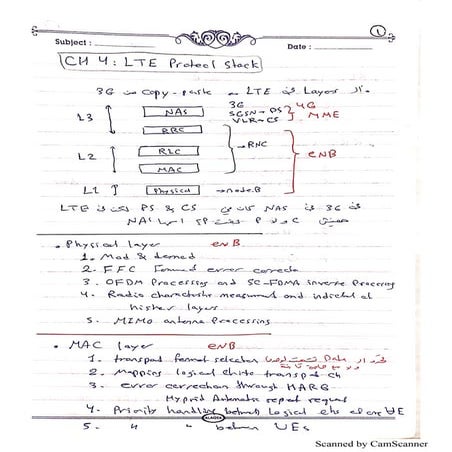 1
Subject :
Date :
CH 4: LTE Protocol Stack
الـ Layers في LTE ← Copy-paste من 3G
L3
NAS
RRC
3G
SGSN → PS
VLR → CS
4G
MME
L2
RLC
MAC
→ RNC
eNB
L1
Physical
→ node B
في 3G NAS كان في CS & PS لكن في LTE
• Physical layer eNB
1. Mod & demod
2. FFC Forward error correcto
3. OFDM Processing and SC-FDMA inverse Processing
4. Radio characteristic measurement and
higher layers
5. MIMO antenna Processing
• MAC layer eNB
1. transport format selection
2. Mapping logical ch to transport ch
3. error correction through HARQ
Hybrid Automatic repeat request
4. Priority handling between logical chs of one UE
5. " " between UEs
Scanned by CamScanner